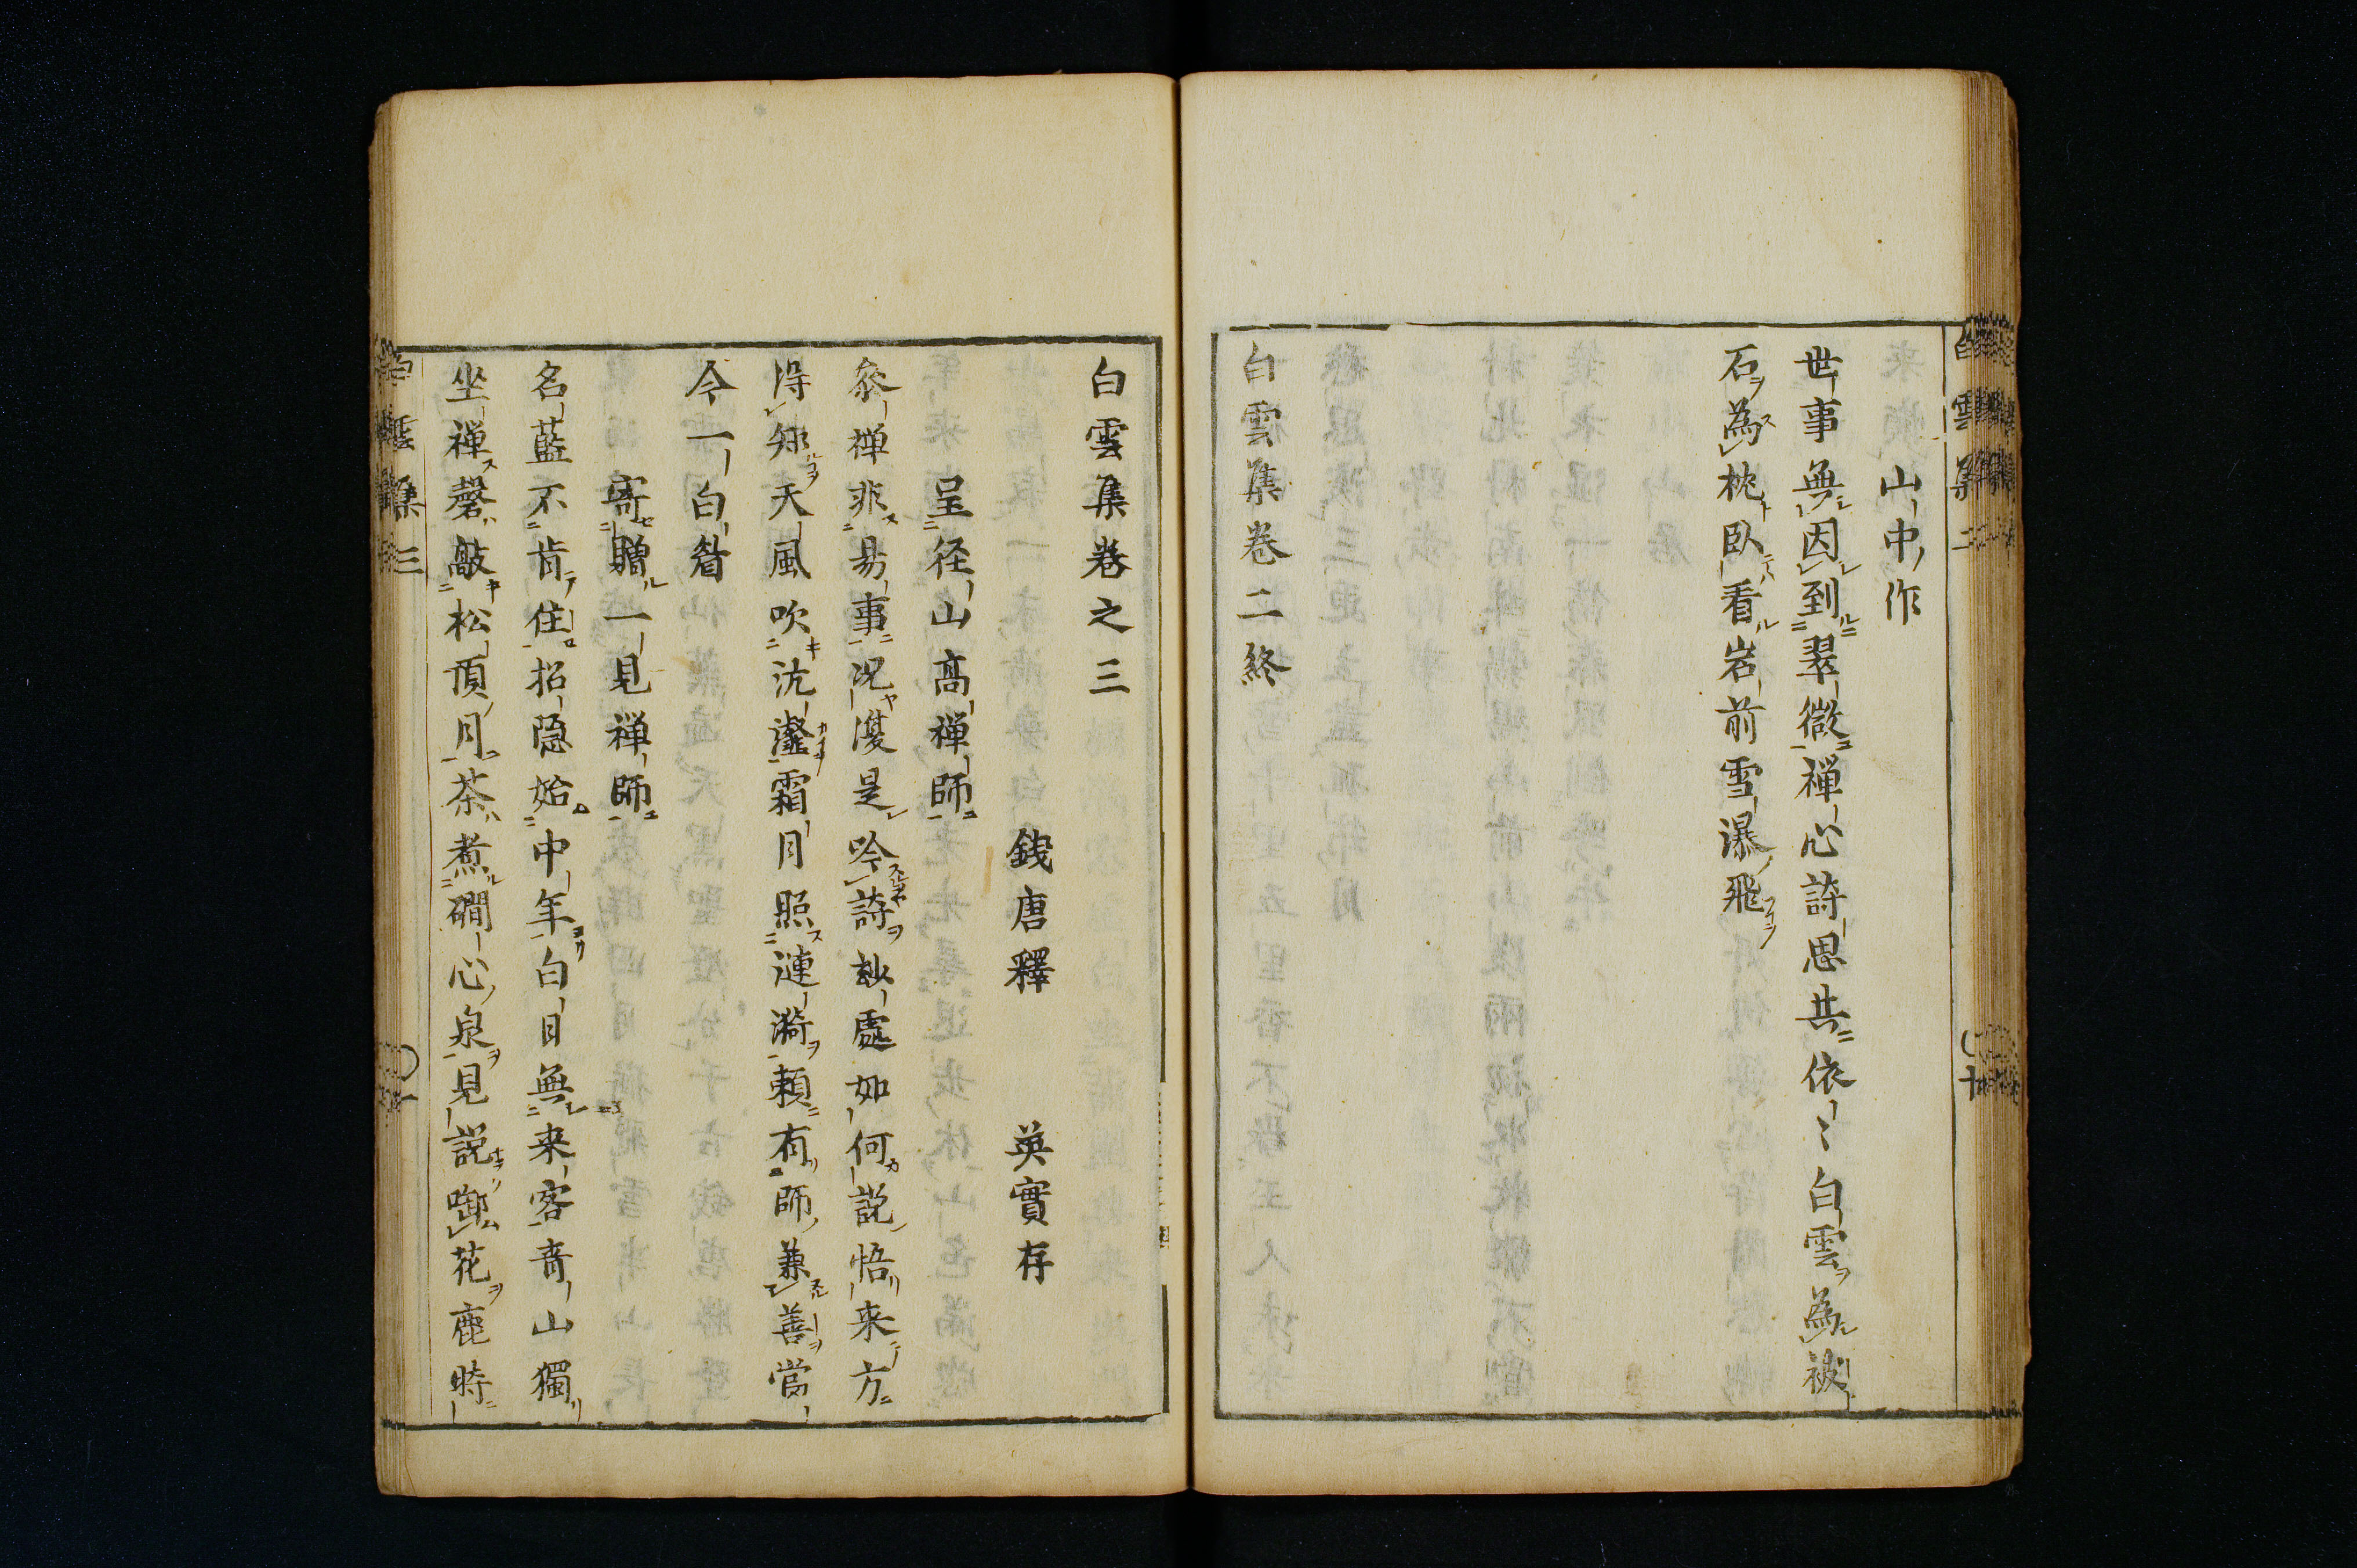 山中作
世事無因到翠微禅心詩思共依〻白雲為被
石為枕臥看岩前雪瀑飛
白雲集巻二終
白雲集巻之三
銭唐釋 英實存
呈径山高禅師
叅禅非易事况復是吟詩玅處如何説悟来方
得知天風吹沆瀣霜月照漣漪頼有師兼善當
今一白眉
寄贈一見禅師
名藍不肯住招隠始中年白日無来客青山獨
坐禅磬敲松頂月茶煮磵心泉見説啣花鹿時
白雲集三